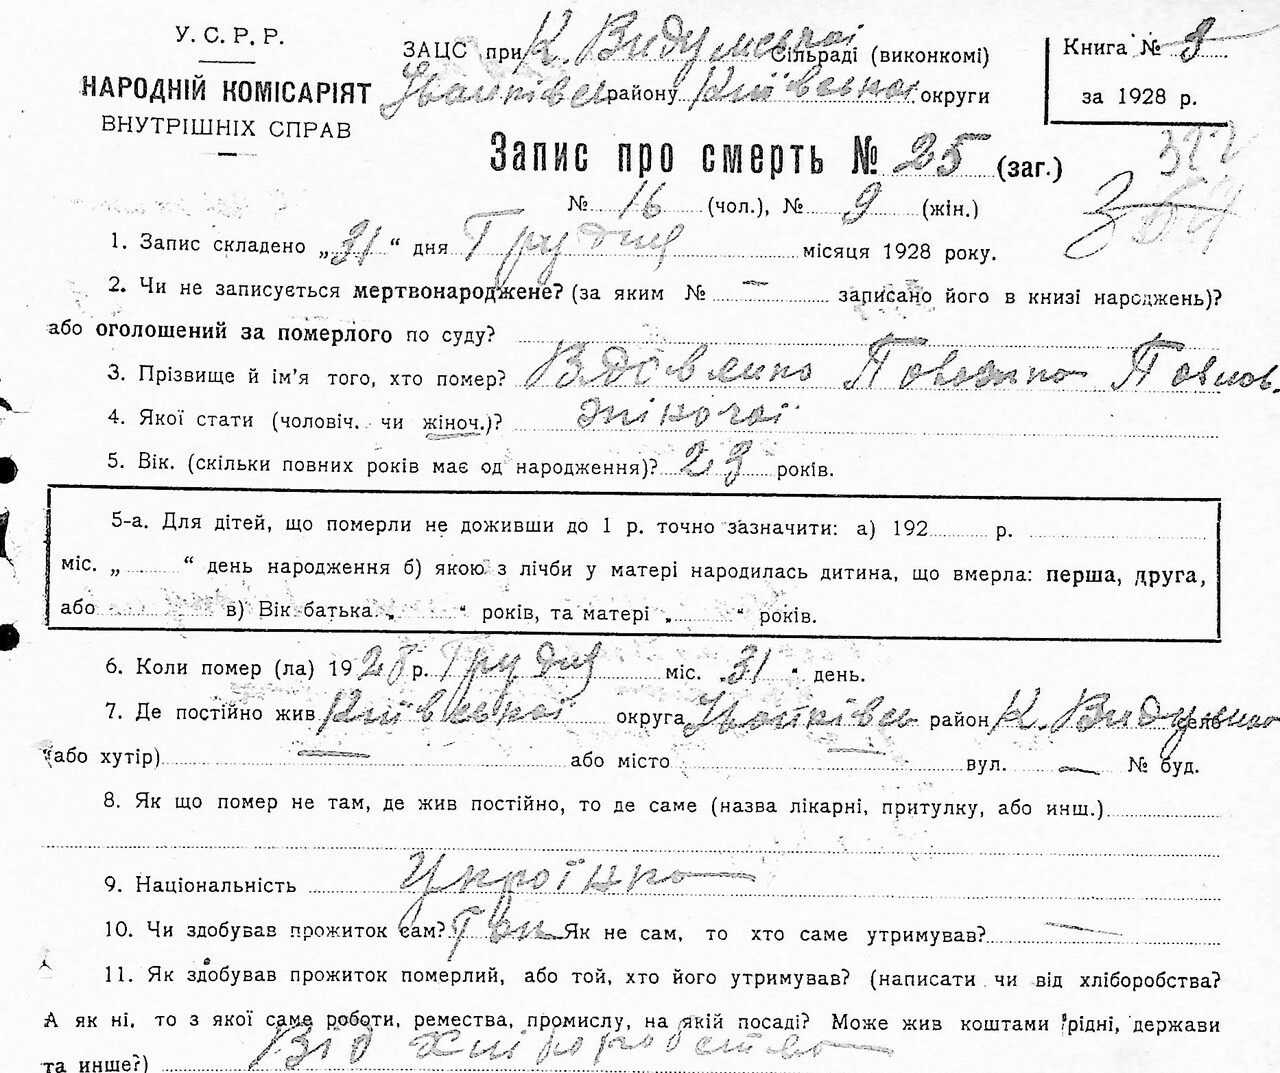 У. С. Р. Р.
НАРОДНІЙ КОМІСАРІЯТ
ВНУТРІШНІХ СПРАВ
ЗАЦС при К. Видумської Сільраді (виконкомі)
району Київської округи
Книга №
за 1928 р.
Запис про смерть № 25 (заг.)
№ 16 (чол.), № 9 (жін.)
1. Запис складено „31“ дня Грудня місяця 1928 року.
2. Чи не записується мертвонароджене? (за яким № — записано його в книзі народжень)?
або оголошений за померлого по суду?
3. Прізвище й ім'я того, хто помер? Вдовенко
4. Якої стати (чоловіч. чи жіноч.)? жіночої
5. Вік. (скільки повних років має од народження)? 29 років.
5-а. Для дітей, що померли не доживши до 1 р. точно зазначити: а) 192 р.
міс. „ “ день народження б) якою з лічби у матері народилась дитина, що вмерла: перша, друга,
або в) Вік батька „ “ років, та матері „ “ років.
6. Коли помер (ла) 1928 р. Грудня міс. „31“ день.
7. Де постійно жив Київської округа район К. село
(або хутір) — або місто — вул. — № буд.
8. Як що помер не там, де жив постійно, то де саме (назва лікарні, притулку, або инш.)
9. Національність Українка
10. Чи здобував прожиток сам? Так Як не сам, то хто саме утримував? —
11. Як здобував прожиток померлий, або той, хто його утримував? (написати чи від хліборобства?
А як ні, то з якої саме роботи, ремества, промислу, на якій посаді? Може жив коштами рідні, держави
та инше?) Від хліборобства